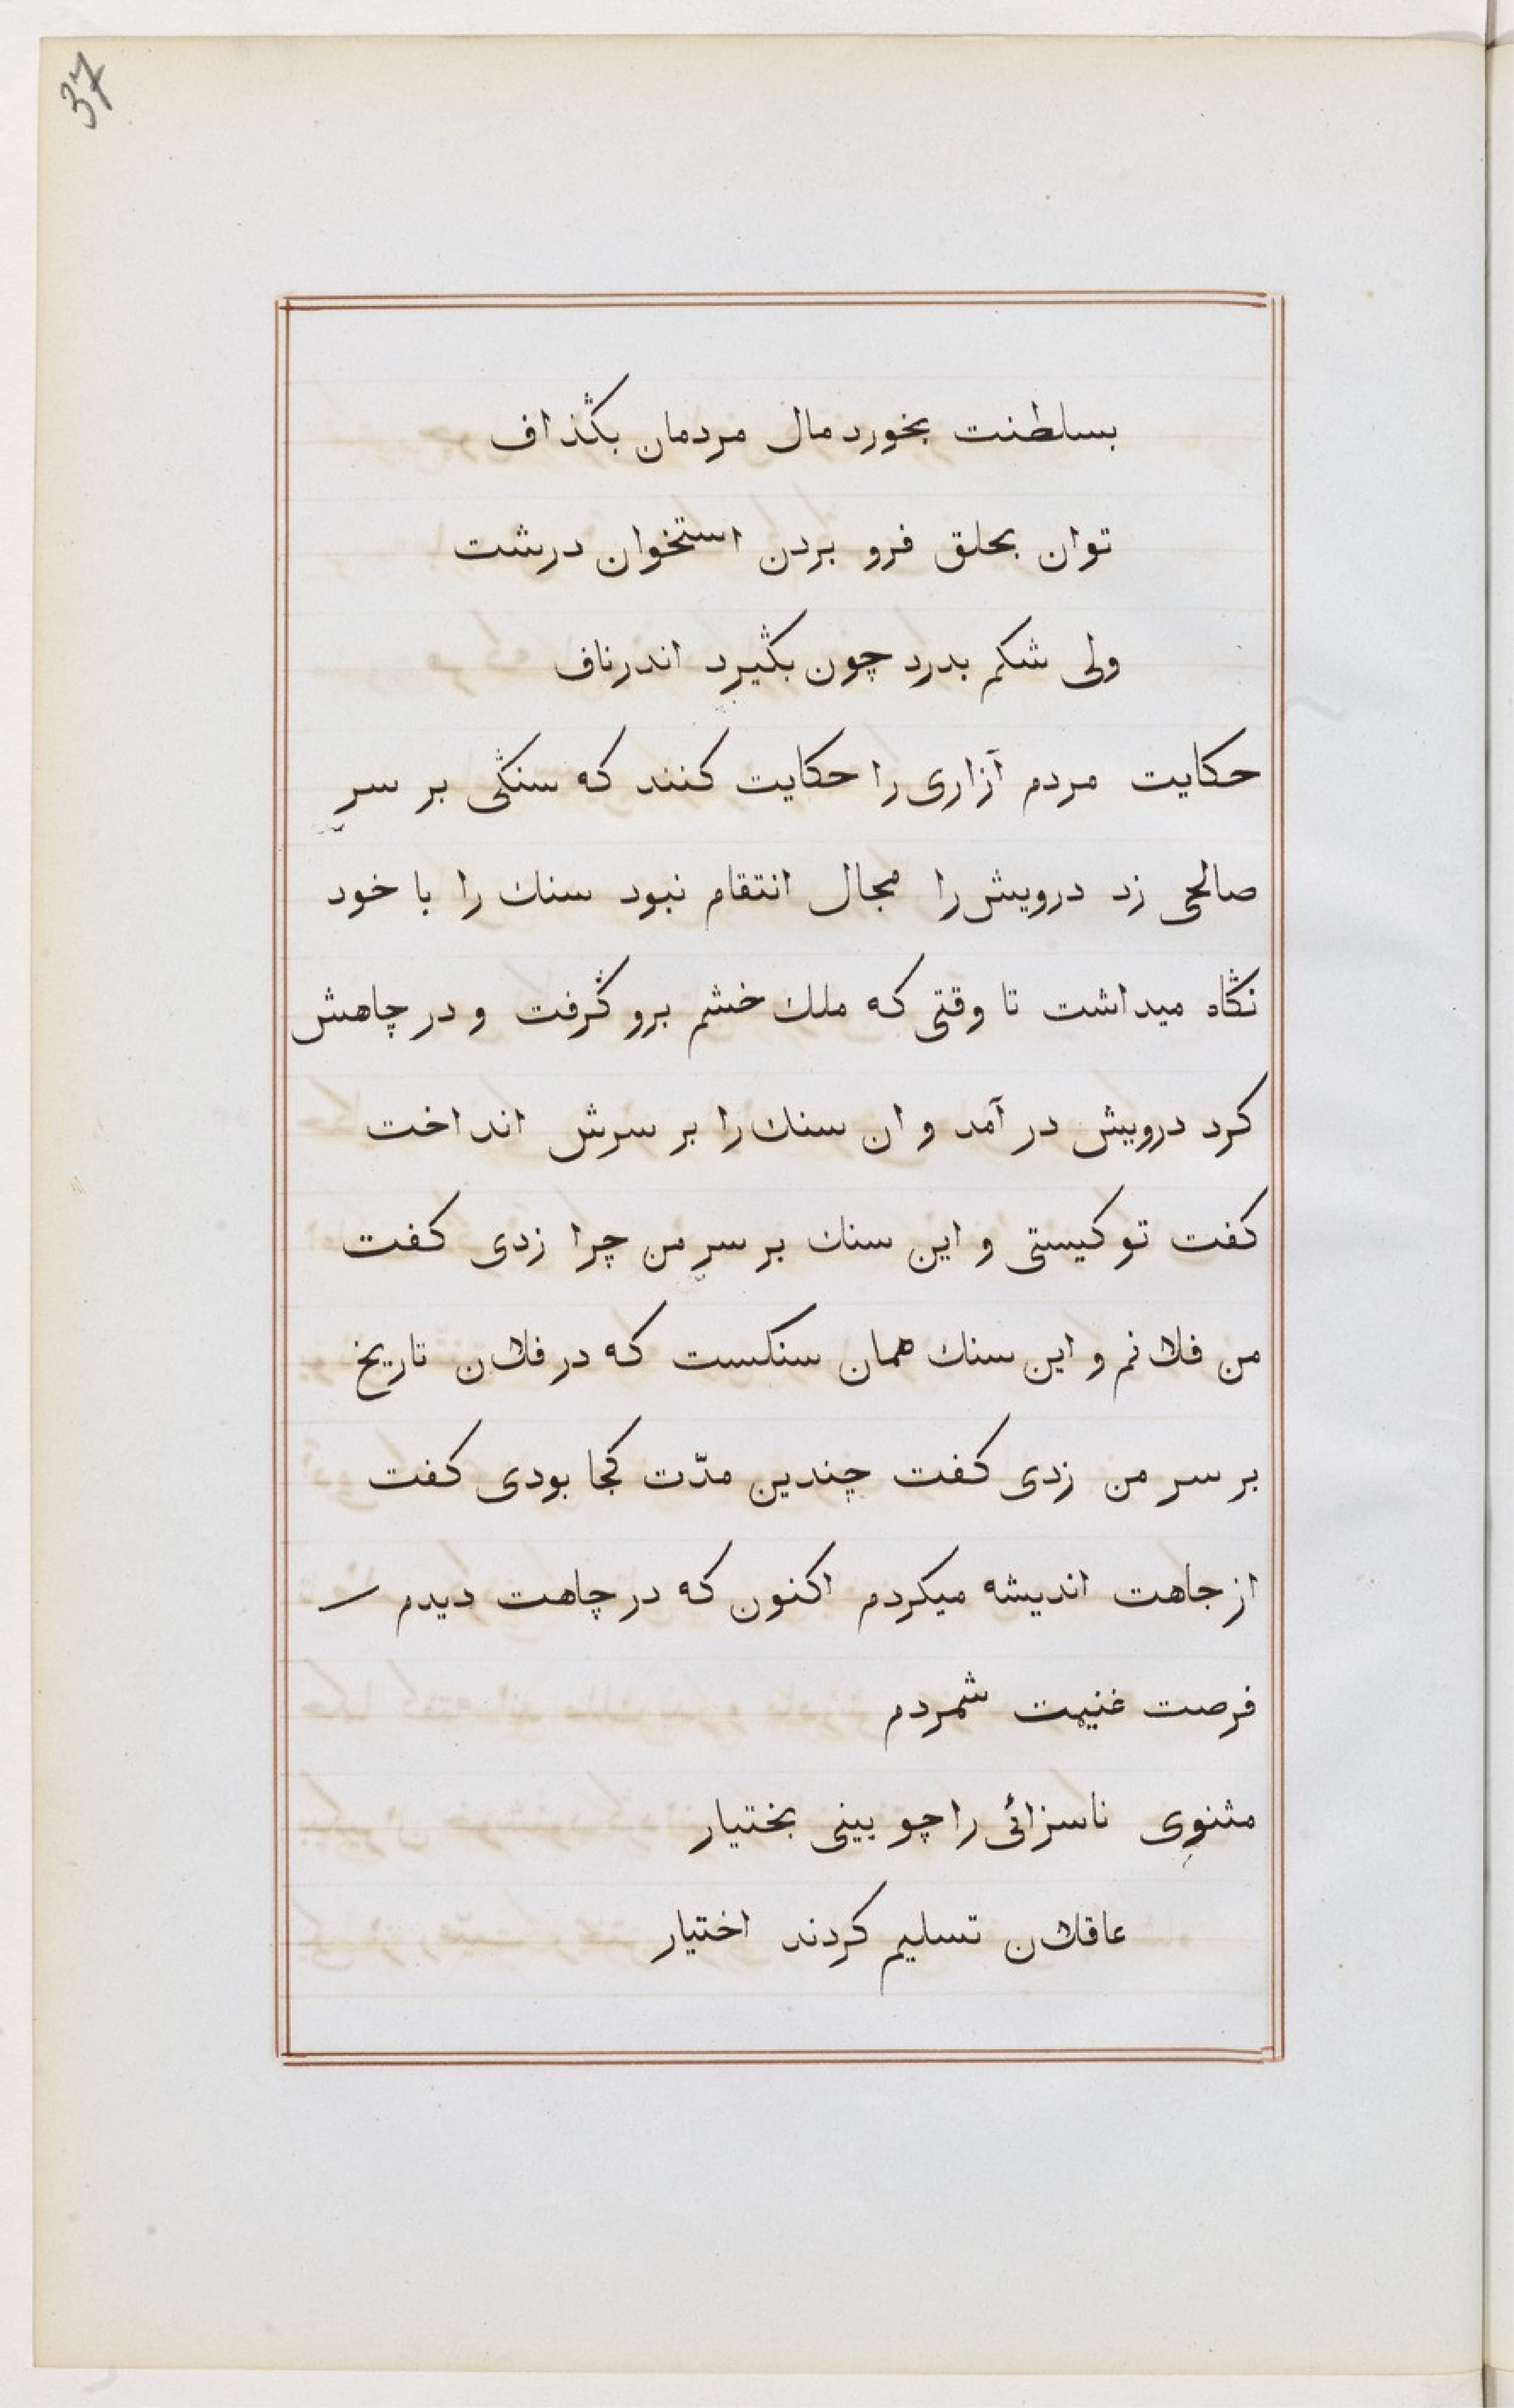 37
بسلطنت بخورد مال مردمان بگذاف
توان بحلق فرو بردن استخوان درشت
ولی شکم بدرد چون بگیرد اندرناف
حکایت مردم آزاری را حکایت کنند که سنگی بر سرِ
صالحی زد درویش را مجال انتقام نبود سنك را با خود
نگاه میداشت تا وقتی که ملك خشم برو گرفت و در چاهش
کرد درویش در آمد و ان سنك را بر سرش انداخت
کفت تو کیستی و این سنك بر سرِ من چرا زدی کفت
من فلانم و این سنك همان سنکست که در فلان تاریخ
بر سر من زدی کفت چندین مدّت کجا بودی کفت
از جاهت اندیشه میکردم اکنون که در چاهت دیدم
فرصت غنیمت شمردم
مثنوِی ناسزائی را چو بینی بختیار
عاقلان تسلیم کردند اختیار